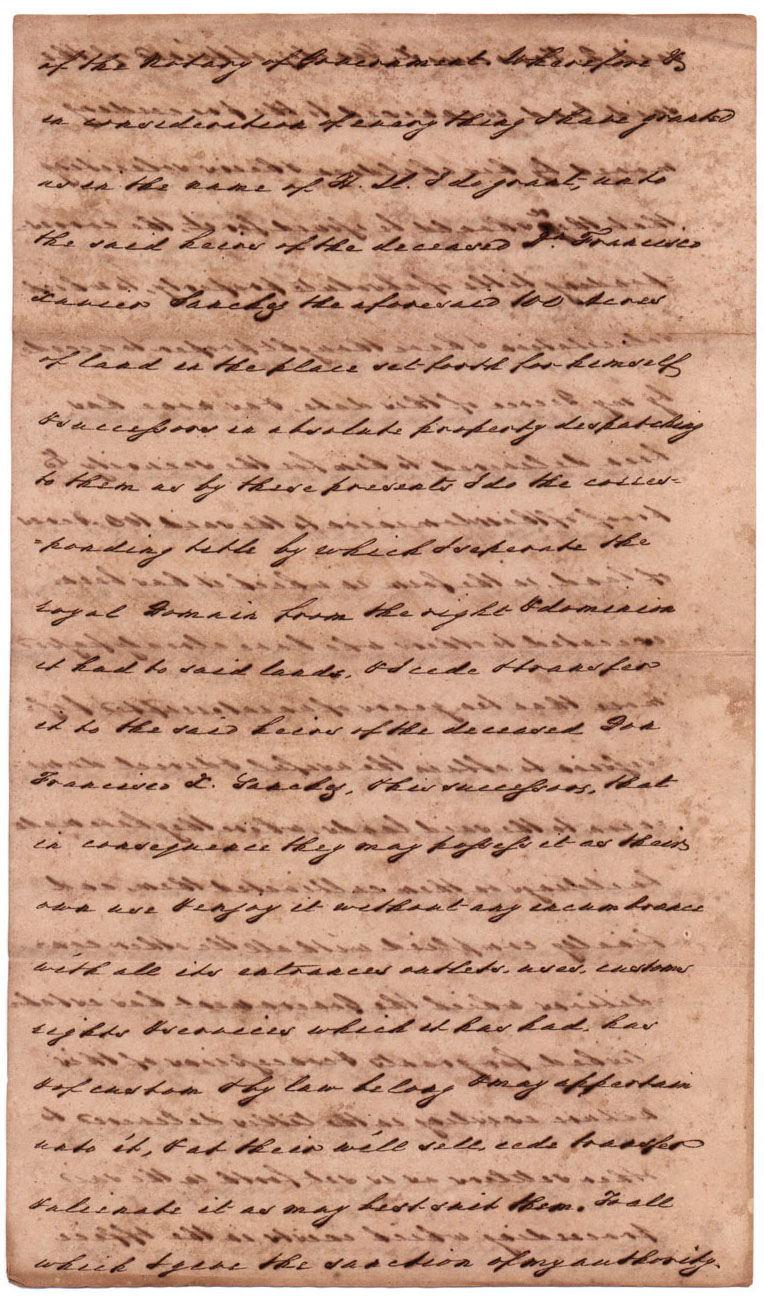 of the Notary of Government. Wherefore &
in consideration of every thing I have granted
as in the name of H. M. I do grant, unto
the said heirs of the deceased Dn. Francisco
Xavier Sanchez the aforesaid 100 Acres
of land in the place set forth for himself
& successors in absolute property despatching
to them as by these presents I do the corres=
=ponding title by which I seperate the
royal Domain from the right & dominion
it had to said lands, & I cede & transfer
it to the said heirs of the deceased Don
Francisco X. Sanchez, & his successors, that
in consequence they may possess it as their
own use & enjoy it without any incumbrance
with all its entrances outlets, uses, customs
rights & services which it has had, has
& of custom & by law belong & may appertain
unto it, & at their will sell, cede transfer
& alienate it as may best suit them. To all
which I give the sanction of my authority.